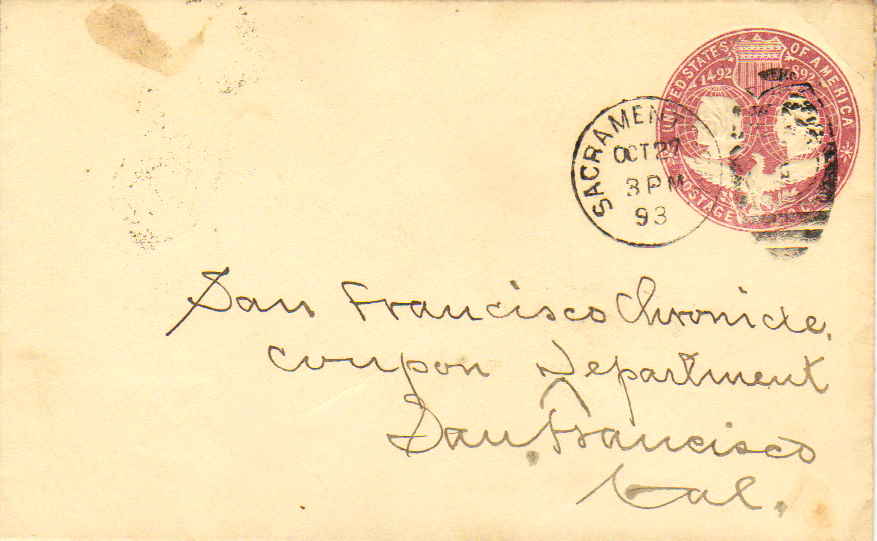 UNITED STATES OF AMERICA
1492 1892
POSTAGE
SACRAMENTO
OCT 27
3 PM
93
San Francisco Chronicle,
Coupon Department
San Francisco
Cal.